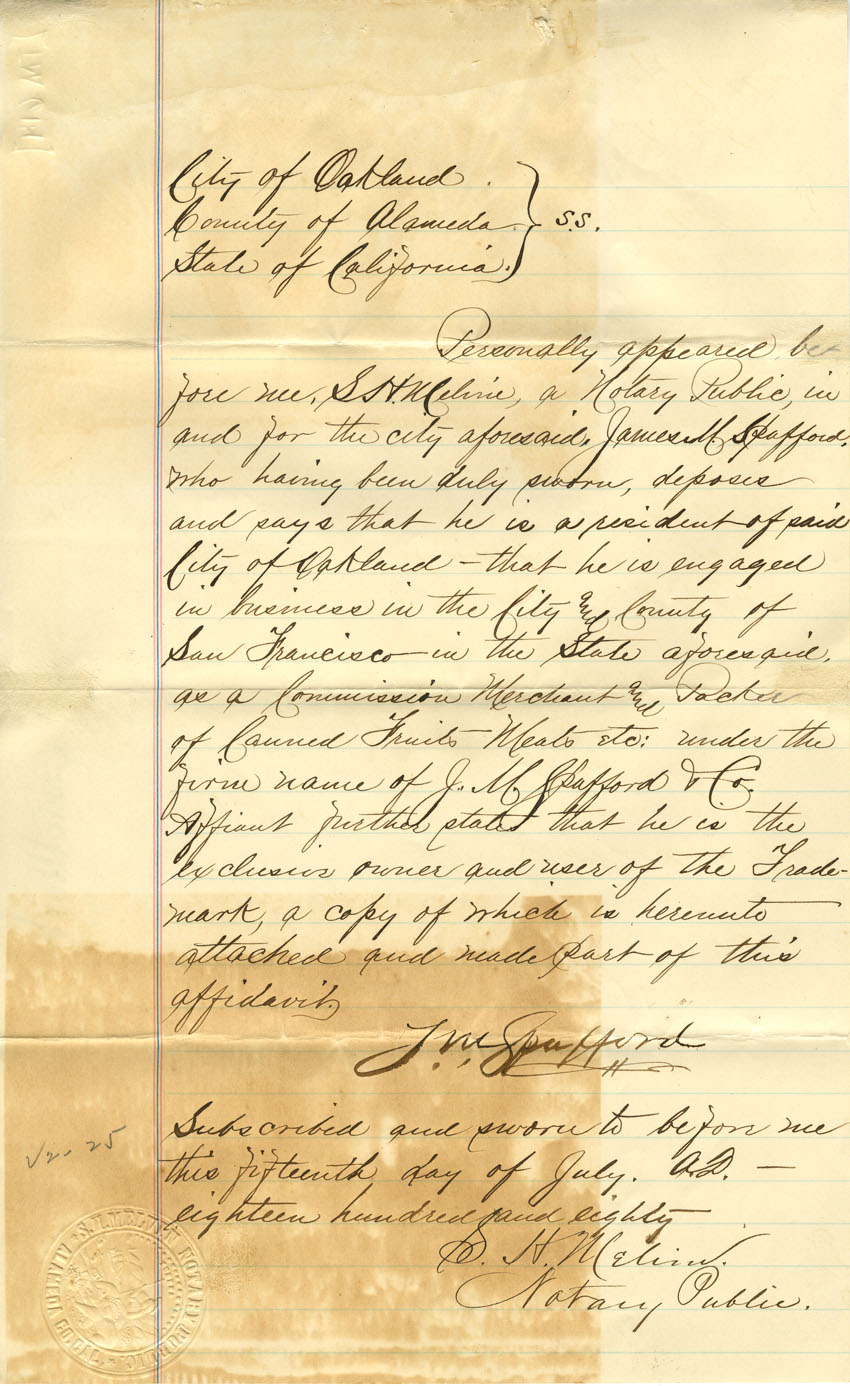 City of Oakland.
County of Alameda. } S.S.
State of California.
Personally appeared be
fore me, S. H. Melvin, a Notary Public, in
and for the city aforesaid, James M. Spafford,
who having been duly sworn, deposes
and says that he is a resident of said
City of Oakland – that he is engaged
in business in the City and County of
San Francisco in the State aforesaid,
as a Commission Merchant and Packer
of Canned Fruits Meats etc: under the
firm name of J. M. Spafford & Co.
Affiant further states that he is the
exclusive owner and user of the Trade-
mark, a copy of which is hereunto
attached and made part of this
affidavit.
J. M. Spafford
Subscribed and sworn to before me
this fifteenth day of July. A.D. —
eighteen hundred and eighty
S. H. Melvin.
Notary Public.
S. H. MELVIN NOTARY PUBLIC ALAMEDA CO. CAL.